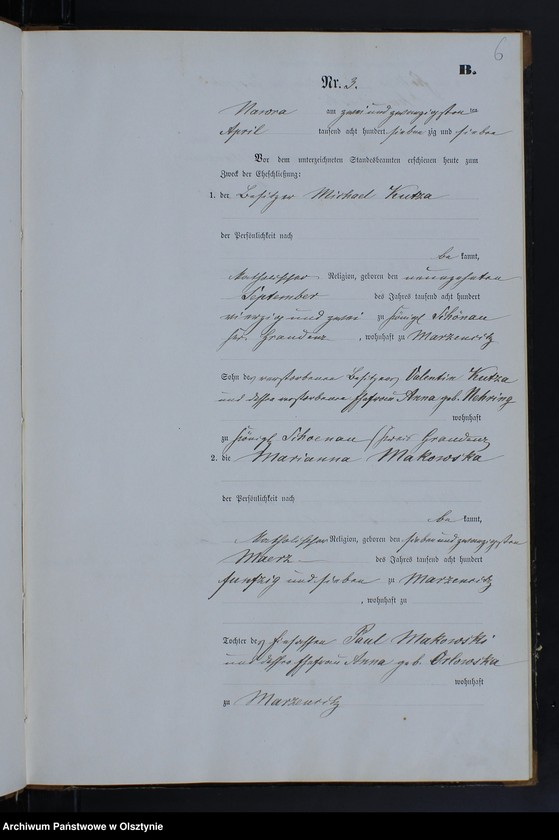 6
B.
Nr. 3.
Nawra am zwei und zwanzigsten ten
April tausend acht hundert sieben zig und sieben
Vor dem unterzeichneten Standesbeamten erschienen heute zum
Zweck der Eheschließung:
1. der Besitzer Michael Kutza
der Persönlichkeit nach
be kannt,
katholischer Religion, geboren den neunzehnten
September des Jahres tausend acht hundert
vierzig und zwei zu Königl Schönau
Kr. Graudenz, wohnhaft zu Marzencitz
Sohn des verstorbenen Besitzers Valentin Kutza
und dessen verstorbene Ehefrau Anna geb. Nehring
wohnhaft
zu Königl Schoenau Kreis Graudenz
2. die Marianna Makowska
der Persönlichkeit nach
be kannt,
katholischer Religion, geboren den sieben und zwanzigsten
Maerz des Jahres tausend acht hundert
funfzig und sieben zu Marzencitz
, wohnhaft zu
Tochter des Einsassen Paul Makowski
und dessen Ehefrau Anna geb. Orlowska
wohnhaft
zu Marzencitz
Archiwum Państwowe w Olsztynie